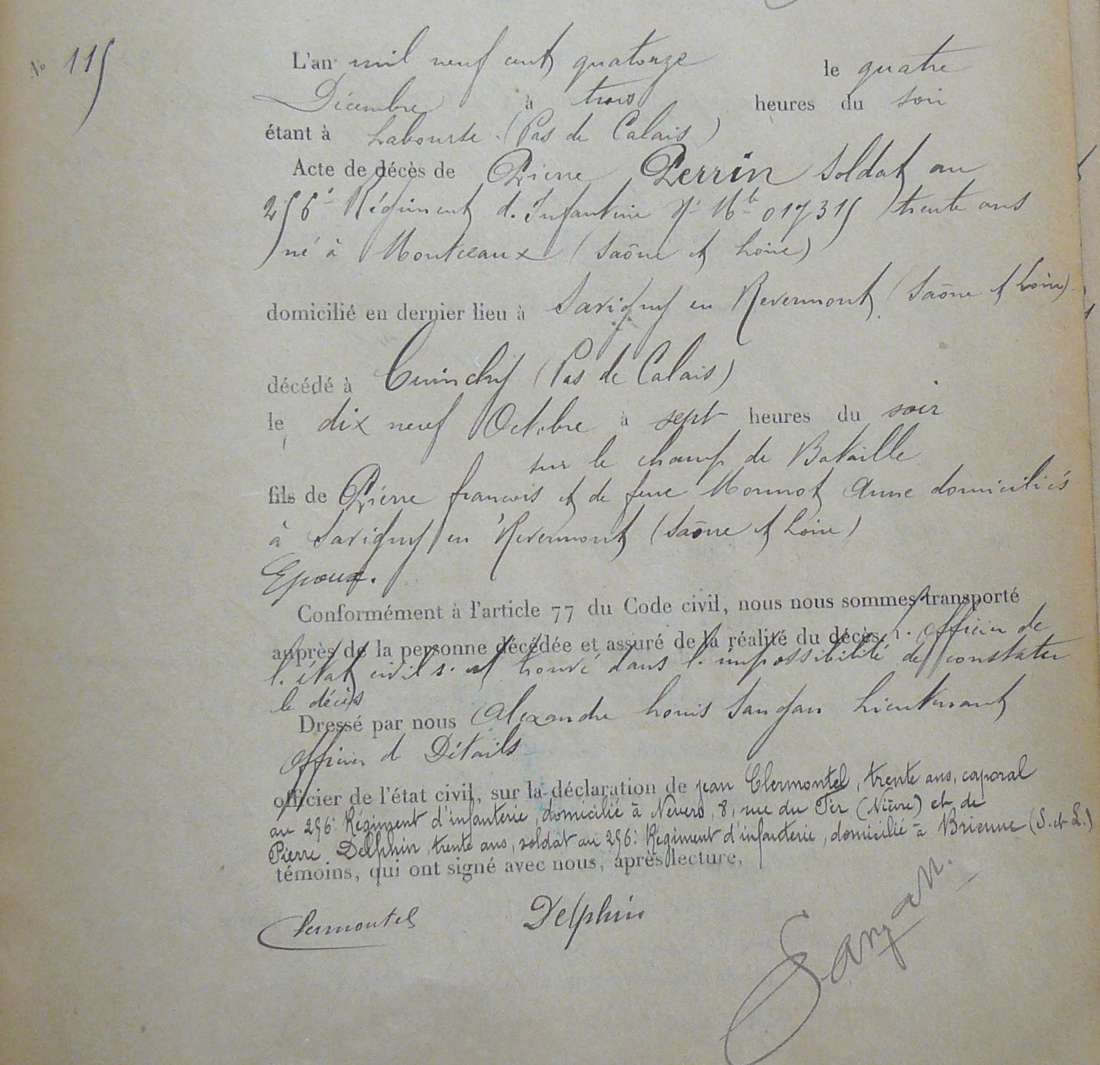 No 115
L'an mil neuf cent quatorze le quatre
Décembre à trois heures du soir
étant à Labourse (Pas de Calais)
Acte de décès de Pierre Perrin soldat au
256e Régiment d'Infanterie No Mle 017315 trente ans
né à Montceaux (Saône et Loire)
domicilié en dernier lieu à Savigny en Revermont (Saône et Loire)
décédé à Cuinchy (Pas de Calais)
le dix neuf Octobre à sept heures du soir
sur le champ de Bataille
fils de Pierre françois et de feue Monnot Anne domiciliés
à Savigny en Revermont (Saône et Loire)
Epoux.
Conformément à l'article 77 du Code civil, nous nous sommes transporté
auprès de la personne décédée et assuré de la réalité du décès, l'officier de
l'état civil s'est trouvé dans l'impossibilité de constater
le décès
Dressé par nous Alexandre Louis Lieutenant
officier de Détails
officier de l'état civil, sur la déclaration de jean Clermontel, trente ans, caporal
au 256e Régiment d'infanterie, domicilié à Nevers, 8, rue du Fer (Nièvre) et de
Pierre Delphin trente ans, soldat au 256e Régiment d'infanterie, domicilié à Brienne (S. et L.)
témoins, qui ont signé avec nous, après lecture,
Clermontel Delphin